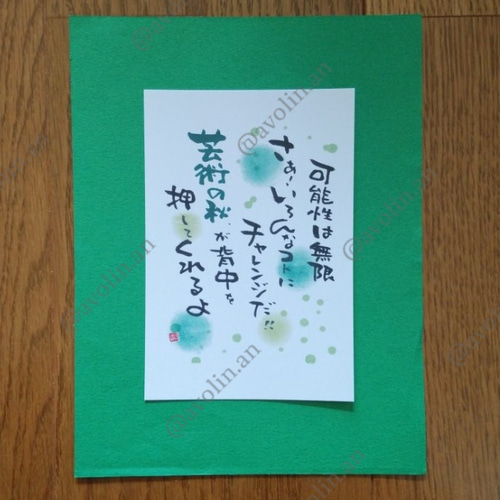 可能性は無限
さあ!いろんなコトに
チャレンジだ!!
芸術の秋が背中を
押してくれるよ
@avolin.an
@avolin.an
@avolin.an
@avolin.an
@avolin.an